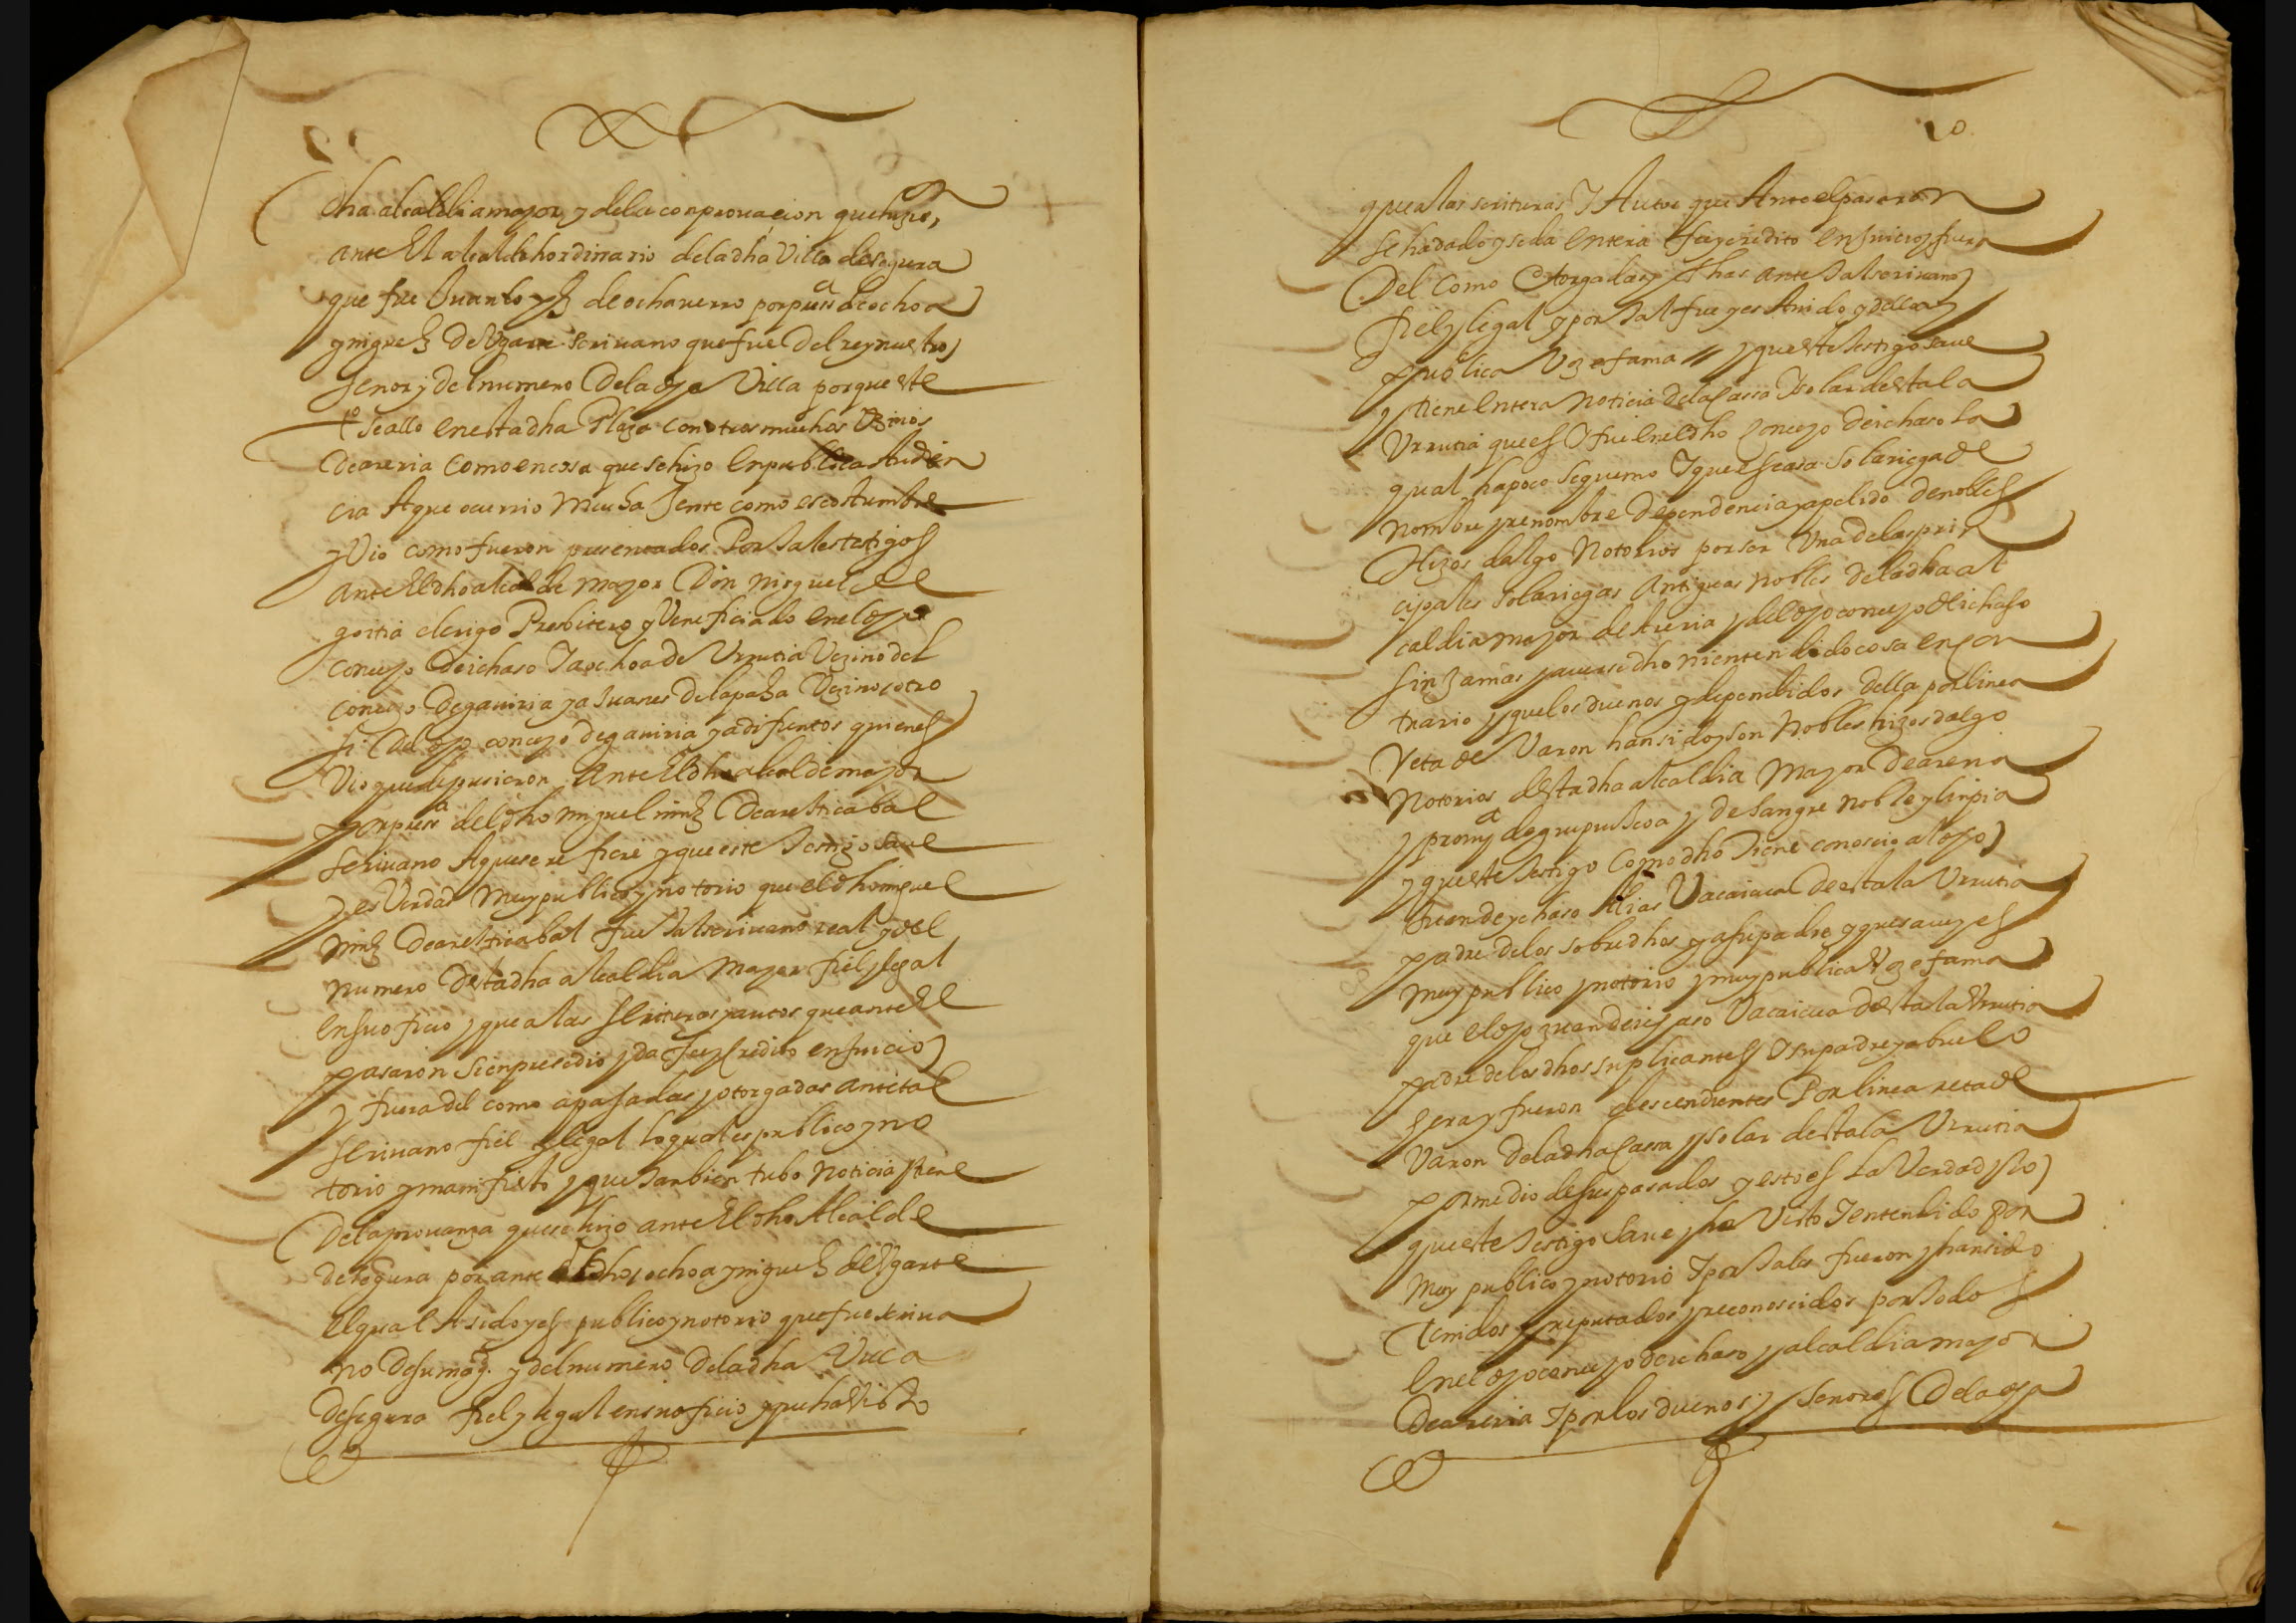 dha alcaldia mayor y de la conprouaçion que hizo,
ante El alcalde hordinario de la dha Villa de segura
que fue Juan lopz de ochaverro por pressa de ochoa
yniguez De Vgarte scriuano que fue Del rey nuestro
senor y del numero De la dha Villa porque este
to se allo en esta dha Plaza con otros muchos Vzinos
de areria Como en cosa que se hizo En publica Audien
cia A que ocurrio Mucha Jente como es costumbre
y Vio como fueron presentados Por tales testigos
ante El dho alcalde mayor Don miguel de
goitia clerigo Presbitero y Veneficiado en el dho
concejo De ichaso Ja ochoa de Vrrutia Vezino del
concejo De gauiria y a Juanes De lapaza Vezino otro
si del dho concejo de gauiria ya difuntos quienes
Vio que depusieron Ante El dho alcalde mayor
por pressa del dho miguel minz De aresticabal
scriuano A que se re fiere y que este testigo saue
y es Verdad Muy publico y notorio que el dho miguel
minz De aresticabal fue tal scriuano real y del
numero De esta dha alcaldia Mayor fiel y legal
En su oficio y que a las scrituras y autos que ante El
pasaron sienpre se dio y da fee y credito en Juicio
y fuera del como a pasadas y otorgadas ante tal
scriuano fiel y legal lo qual es publico y no
torio y manifiesto y que tanbien tubo noticia y tiene
De la prouanza que se hizo ante El dho Alcalde
de segura por ante El dho ochoa yniguez de Vgarte
El qual A sido y es publico y notorio que fue scriua
no De su magd. y del numero De la dha Villa
De segura fiel y legal en su oficio y que ha Visto
20
que a las scrituras Y Autos que Ante el pasaron
se ha dado y se da Entera fee y credito en Juicio y fuera
Del Como Otorgadas y fhas ante tal scriuano
fiel y legal y por tal fue y es tenido y dello a
publica Voz e fama // y que este testigo saue
y tiene Entera noticia De la Cassa Y solar de estala
Vrrutia que es Y fue En el dho Concejo De ichaso la
qual ha poco se quemo Y que es casa solariega de
nombre y renombre Dependencia y apelido De nobles
Hijos dalgo Notorios por ser Vna de las prin
cipales solariegas Antiguas nobles de la dha al
caldia mayor de Areria y del dho concejo de ichaso
sin Jamas hauerse dho ni entendido cosa en con
trario y que los duenos y dependidos della por linea
Reta de Varon han sido y son Nobles hijos dalgo
Notorios de esta dha alcaldia Mayor De areria
y prouya de guipuscoa y De sangre noble y linpia
y que este testigo Como dho tiene conoscio al dho
Juan de ychaso Alias Vacaicua De estala Vrrutia
padre de los sobredhos y a su padre y que saue y es
Muy publico y notorio y muy publica Voz e fama
que el dho Juan de ichaso Vacaicua de estala Vrrutia
padre de los dhos suplicantes O su padre y abuelo
Hera y fueron descendientes Por linea reta de
Varon De la dha Cassa y solar de estala Vrrutia
por medio de sus pasados y esto es La Verdad y lo
que este testigo saue y ha Visto Y entendido por
Muy publico y notorio Y por tales fueron y han sido
tenidos y reputados y reconoscidos por todos
En el dho concejo de ichaso y alcaldia mayor
De areria Y por los duenos y senores De la dha